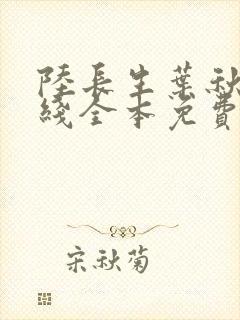 陸長生葉秋
綫全本免費
宋秋菊